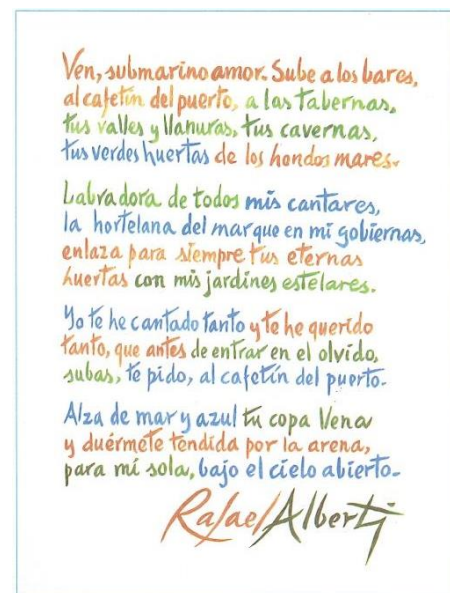 Ven, submarino amor. Sube a los bares,
al cafetín del puerto, a las tabernas,
tus valles y llanuras, tus cavernas,
tus verdes huertas de los hondos mares.
Labradora de todos mis cantares,
la hortelana del mar que en mí gobiernas,
enlaza para siempre tus eternas
huertas con mis jardines estelares.
Yo te he cantado tanto y te he querido
tanto, que antes de entrar en el olvido,
subas, te pido, al cafetín del puerto.
Alza de mar y azul tu copa llena
y duérmete tendida por la arena,
para mí sola, bajo el cielo abierto.
Rafael Alberti